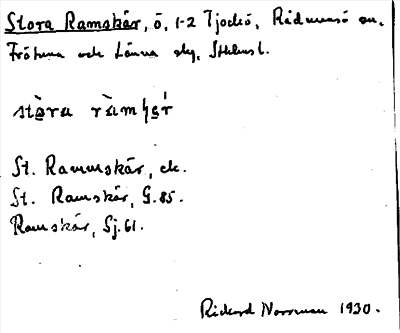 Stora Ramskär, ö, 1-2 Tjockö, Rådmansö sn.
Frötuna och Länna skg, Sthlms l.
stòra ràmʃɛ́r
St. Rammskär, ek.
St. Ramskär, G. 85.
Ramskär, Sj. 61.
Rickard Norrman 1930.